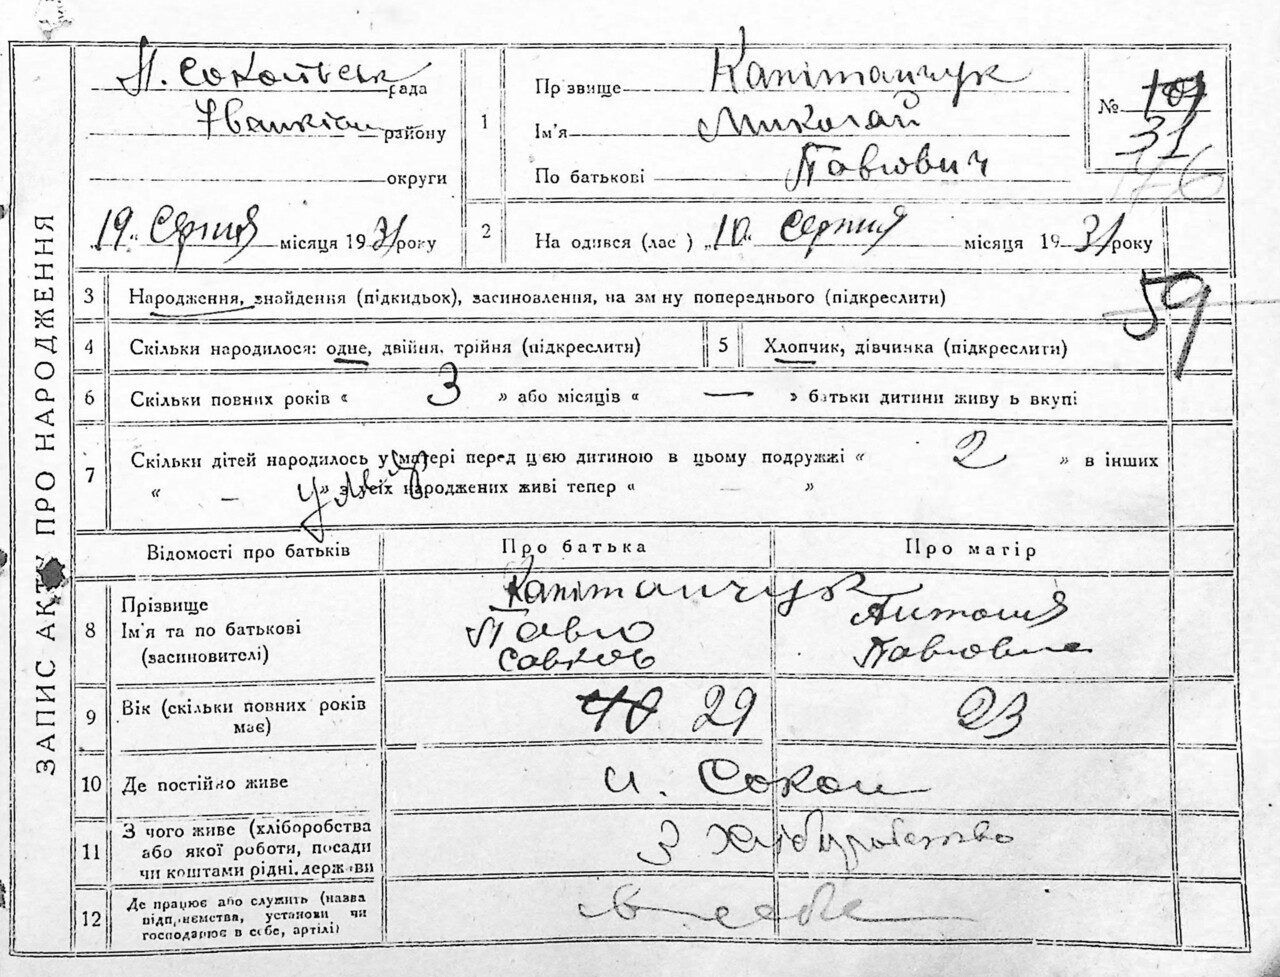 ЗАПИС АКТУ ПРО НАРОДЖЕННЯ
рада
району
округи
„19“ Серпня місяця 1931 року
1
Прізвище Капітанчук
Ім'я Миколай
По батькові Павлович
№
31
176
2
На одився (лас ) „10“ Серпня місяця 1931 року
59
3 Народження, знайдення (підкидьок), засиновлення, на зм ну попереднього (підкреслити)
4 Скільки народилося: одне, двійня, трійня (підкреслити)
5 Хлопчик, дівчинка (підкреслити)
6 Скільки повних років « 3 » або місяців « — » батьки дитини живу ь вкупі
7 Скільки дітей народилось у матері перед цією дитиною в цьому подружжі « 2 » в інших
« — » з усіх народжених живі тепер « »
Відомості про батьків Про батька Про матір
8 Прізвище
Ім'я та по батькові
(засиновителі)
Капітанчук
Павло
Савков
Антонія
Павловна
9 Вік (скільки повних років
має)
40 29 23
10 Де постійно живе
11 З чого живе (хліборобства
або якої роботи, посади
чи коштами рідні, держ ви
З Хліборобство
12 Де працює або служить (назва
підп,иємства, установи чи
господарює в себе, артілі)
в себе